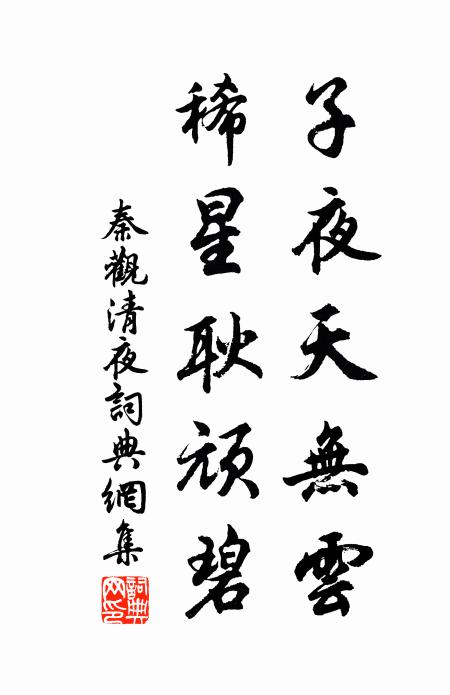 子夜天無雲
稀星耿頑碧
秦觀清夜詞典網集
詞典網印